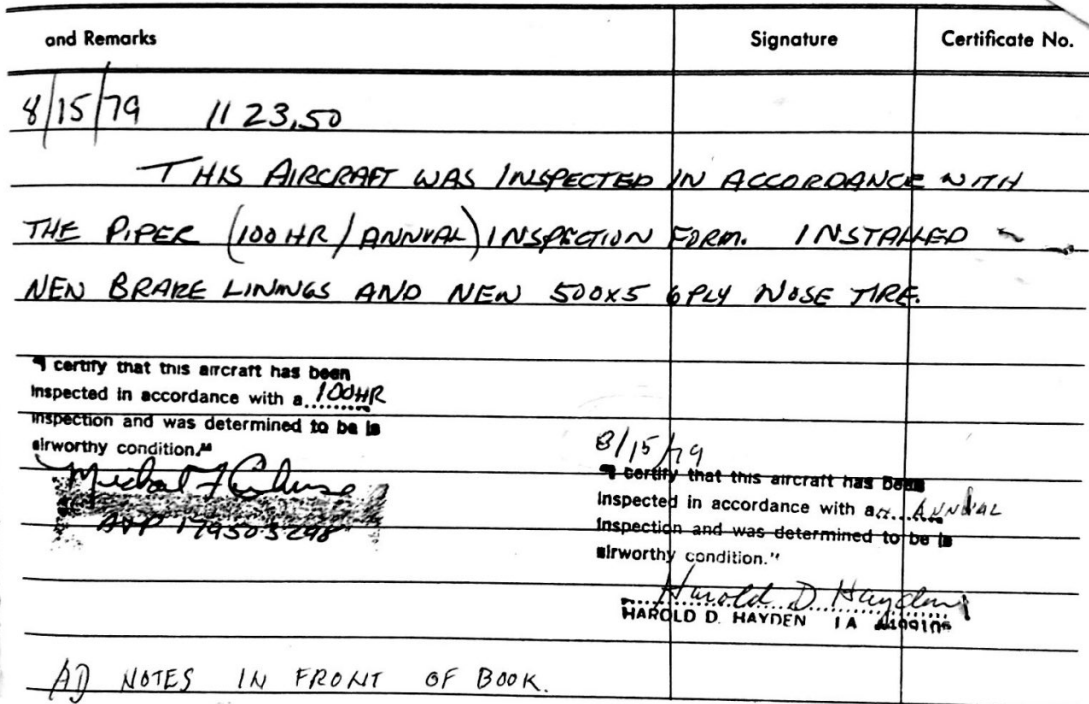 and Remarks Signature Certificate No.
8/15/79 1123.50
THIS AIRCRAFT WAS INSPECTED IN ACCORDANCE WITH
THE PIPER (100 HR / ANNUAL) INSPECTION FORM. INSTALLED
NEW BRAKE LININGS AND NEW 500x5 6 PLY NOSE TIRE.
"I certify that this aircraft has been
inspected in accordance with a 100HR
inspection and was determined to be in
airworthy condition."
A&P 179503298
8/15/79
"I certify that this aircraft has been
inspected in accordance with an ANNUAL
inspection and was determined to be in
airworthy condition."
Harold D. Hayden
HAROLD D. HAYDEN IA
AD NOTES IN FRONT OF BOOK.